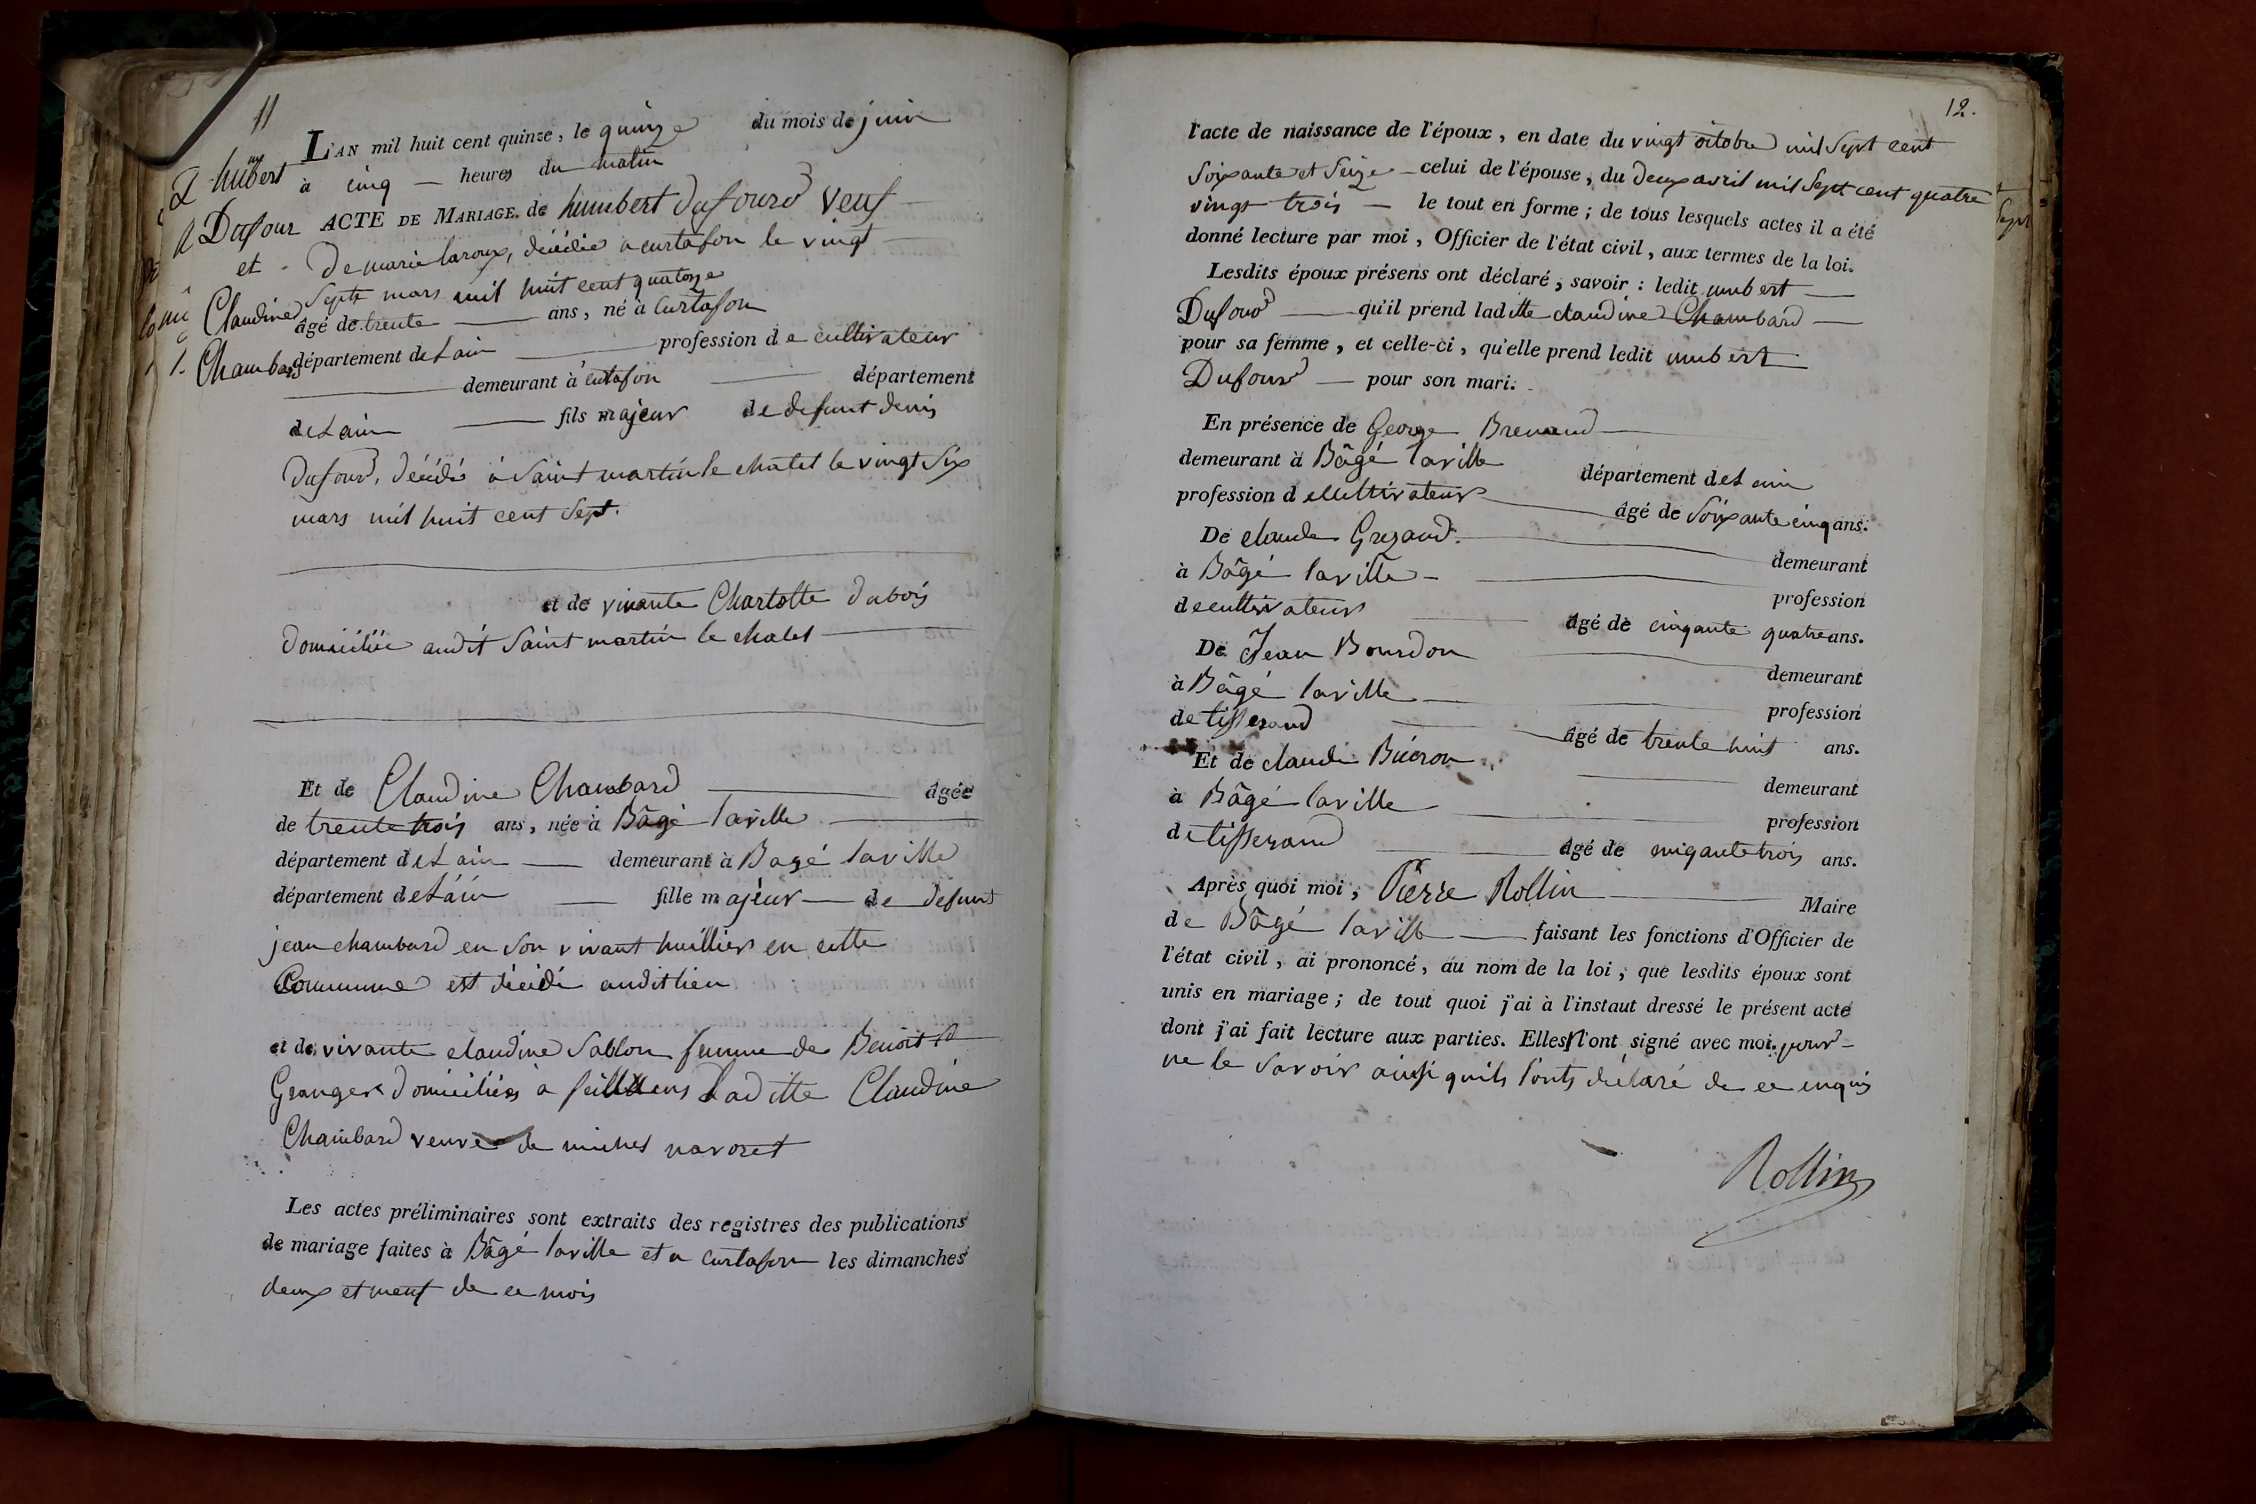 11
humbert
Dufour
et
Claudine
Chambard
L'AN mil huit cent quinze, le quinze du mois de juin
à cinq — heures du matin
ACTE DE MARIAGE de humbert dufourd veuf
De marie laroux, décédée a curtafon le vingt
Septe mars mil huit cent quatorze
âgé de trente — ans, né à Curtafon
département de Lain — profession de cultivateur
— demeurant à Cutafon — département
de Lain — fils majeur de defunt denis
Dufourd, décédé à Saint martin le chatel le vingt Six
mars mil huit cent Sept.
et de vivante Charlotte dubois
domiciliée audit Saint martin le chatel —
Et de Claudine Chambard — âgée
de trente trois ans, née à Bâgé laville —
département de Lain — demeurant à Bagé laville
département de Lain — fille majeur — de defunt
jean chambard en Son vivant huillier en cette
Commune est décédé audit lieu
et de vivante claudine Sablon femme de Benoit
Granger domiciliés à feillens Laditte Claudine
Chambard veuve de michel navoret
Les actes préliminaires sont extraits des registres des publications
de mariage faites à Bâgé laville et a Curtafon les dimanches
deux et neuf de ce mois
12.
l'acte de naissance de l'époux, en date du vingt octobre mil Sept cent
Soixante et Seize — celui de l'épouse, du deux avril mil Sept cent quatre
vingt trois — le tout en forme; de tous lesquels actes il a été
donné lecture par moi, Officier de l'état civil, aux termes de la loi.
Lesdits époux présens ont déclaré, savoir : ledit umbert —
Dufourd — qu'il prend laditte claudine Chambard —
pour sa femme, et celle-ci, qu'elle prend ledit umbert
Dufourd — pour son mari.
En présence de George Brevand —
demeurant à Bâgé laville département de Lain
profession de cultivateur — âgé de Soixante cinq ans.
De claude Grezaud. — demeurant
à Bâgé laville — profession
de cultivateur — âgé de cinqante quatre ans.
De Jean Bourdon — demeurant
à Bâgé laville — profession
de tisserand — âgé de trente huit ans.
Et de claude Buéron — demeurant
à Bâgé laville — profession
de tisserand — âgé de cinqante trois ans.
Après quoi moi, Pierre Rollin — Maire
de Bâgé laville — faisant les fonctions d'Officier de
l'état civil, ai prononcé, au nom de la loi, que lesdits époux sont
unis en mariage; de tout quoi j'ai à l'instaut dressé le présent acte
dont j'ai fait lecture aux parties. Elles n'ont signé avec moi. pour
ne le Savoir ainsi quils l'onts déclaré de ce enquis
Rollin